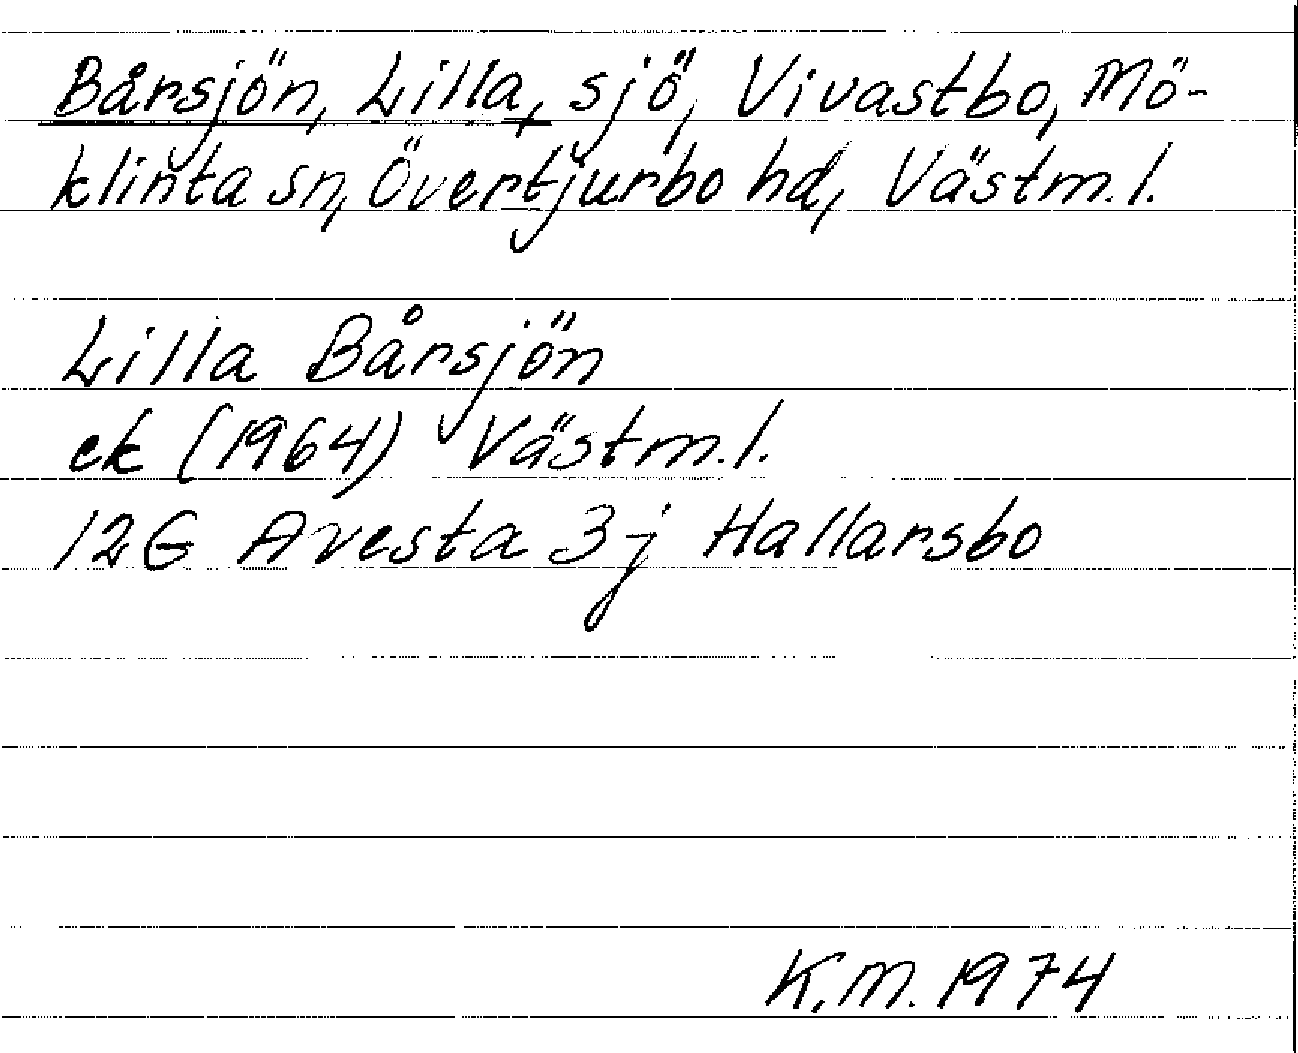 Bårsjön, Lilla, sjö, Vivastbo, Mö-
klinta sn, Övertjurbo hd, Västm.l.
Lilla Bårsjön
ek (1964) Västm.l.
12G Avesta 3j Hallarsbo
K.M. 1974